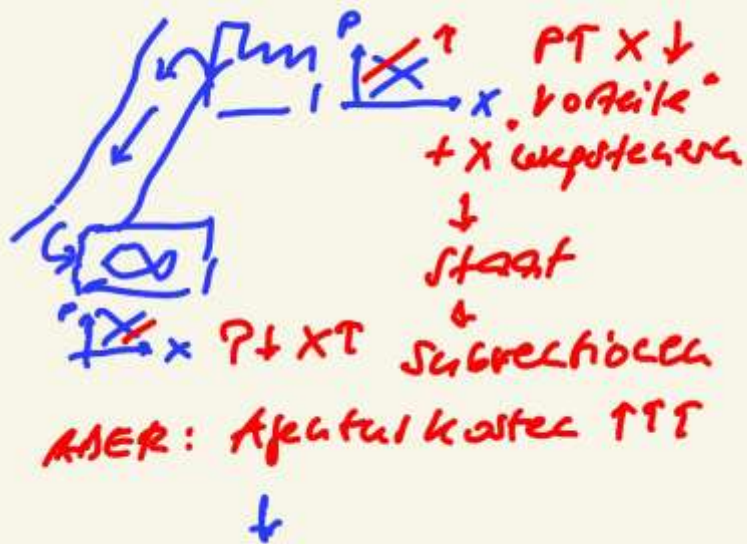 P ↑ P↑ X↓
X "Vorteile"
+ X wegsteuern
↓
Staat
↓
Subventionen
P X P↓ X↑
ABER: Agenturkosten ↑↑↑
↓